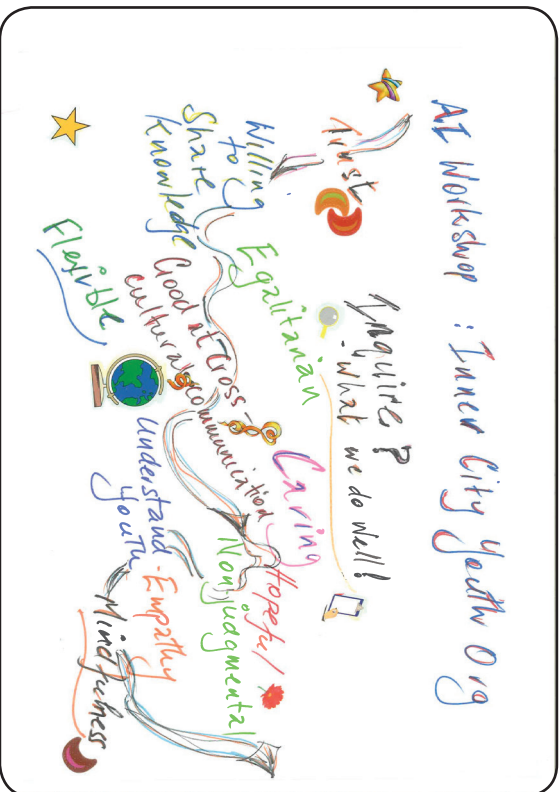 AI Workshop : Inner City Youth Org
Inquire?
- what we do well!
Trust
Willing
to
Share
Knowledge
Egalitarian
Caring
Good at Cross-
cultural communication
Hopeful
Nonjudgmental
Flexible
Understand
Youth
- Empathy
Mindfulness